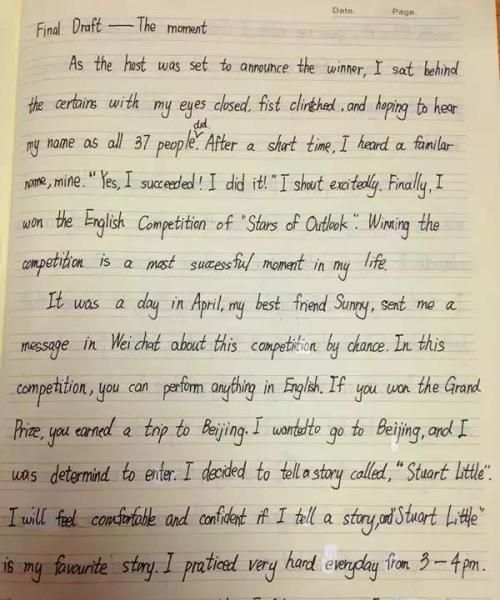 Date. Page.
Final Draft — The moment
As the host was set to announce the winner, I sat behind
the certains with my eyes closed, fist clinthed, and hoping to hear
my name as all 37 people did. After a short time, I heard a familar
name, mine. "Yes, I succeeded! I did it!" I shout excitedly. Finally, I
won the English Competition of "Stars of Outlook". Winning the
competition is a most successful moment in my life.
It was a day in April, my best friend Sunny, sent me a
message in Wei chat about this competition by chance. In this
competition, you can perform anything in English. If you won the Grand
Prize, you earned a trip to Beijing. I wanted to go to Beijing, and I
was determind to enter. I decided to tell a story called, "Stuart Little".
I will feel comfortable and confident if I tell a story, and "Stuart Little"
is my favourite story. I praticed very hard everyday from 3-4pm.